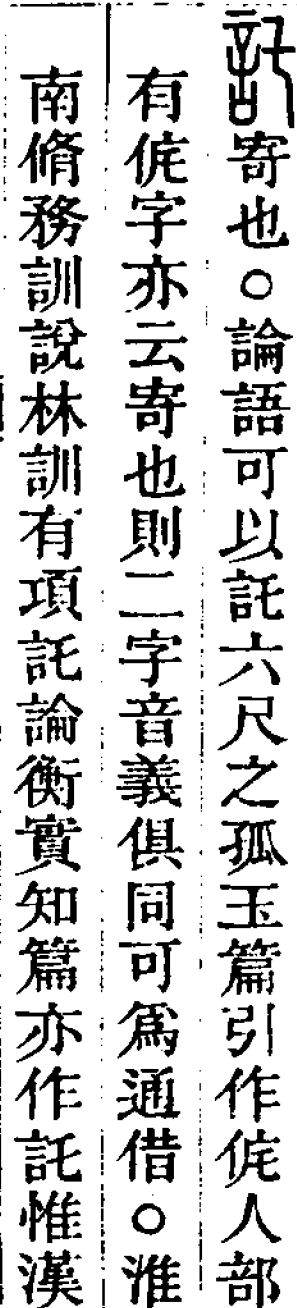 託寄也○論語可以託六尺之孤玉篇引作侂人部
有侂字亦云寄也則二字音義俱同可爲通借○淮
南脩務訓說林訓有項託論衡實知篇亦作託惟漢